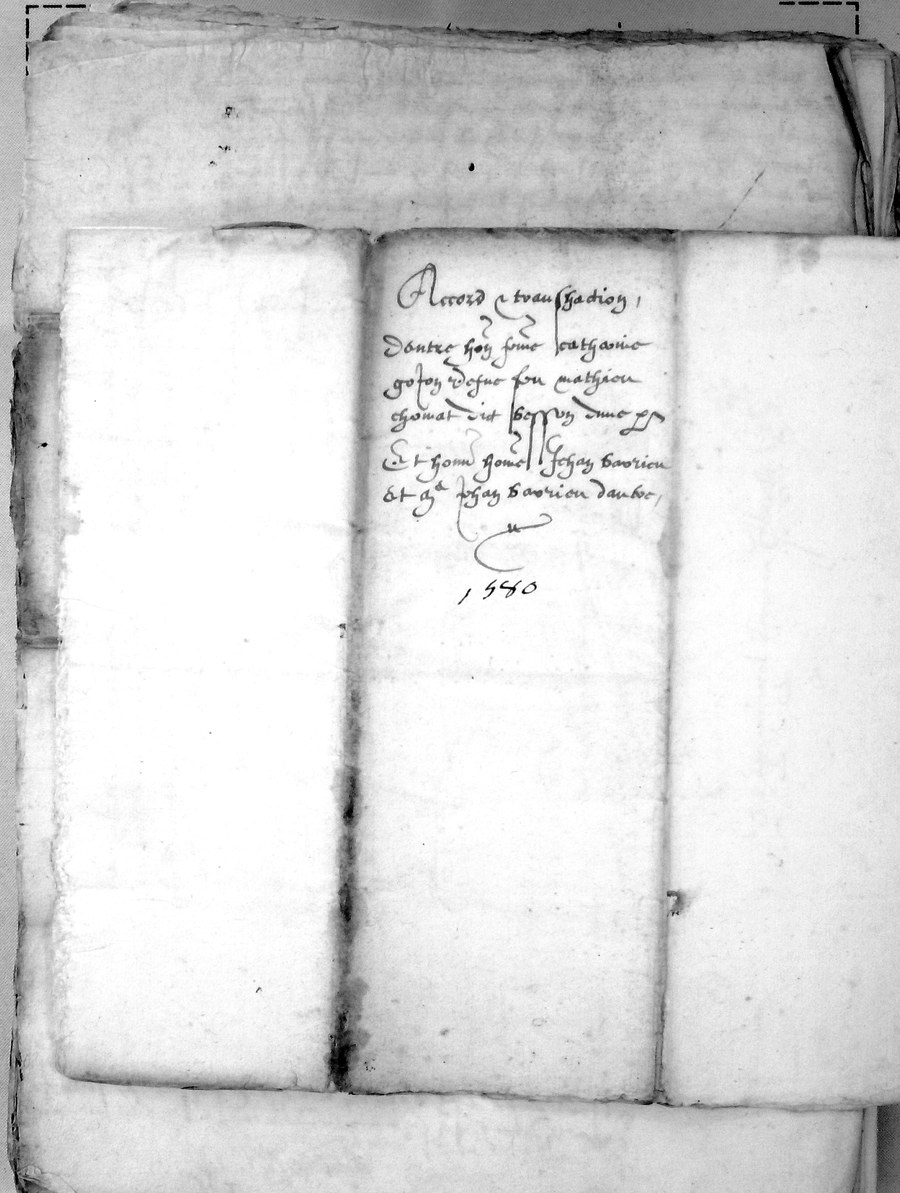 Accord & transaction,
dentre hon femme catherine
gojon vefue feu mathieu
chomat dit besson dune part
Et honn home Jehan barrieu
et Me Jehan barrieu dautre,
1580